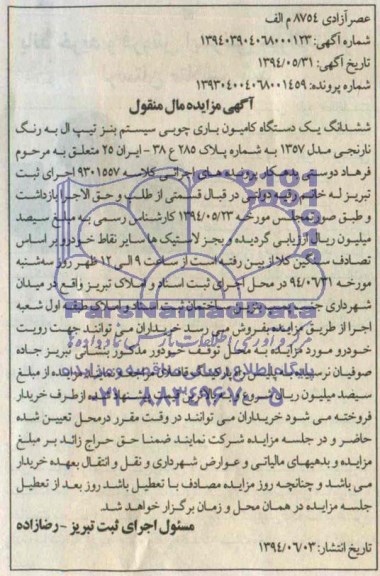 عصر آزادی ۸۷۵۴ م الف
شماره آگهی: ۱۳۹۴۰۳۹۰۴۰۶۸۰۰۰۱۲۳
تاریخ آگهی: ۱۳۹۴/۰۵/۳۱
شماره پرونده: ۱۳۹۳۰۴۰۰۴۰۶۸۰۰۱۴۵۹
آگهی مزایده مال منقول
ششدانگ یک دستگاه کامیون باری چوبی سیستم بنز تیپ ال به رنگ
نارنجی مدل ۱۳۵۷ به شماره پلاک ۲۸۵ ع ۳۸ - ایران ۲۵ متعلق به مرحوم
فرهاد دوستی بدهکار پرونده های اجرائی کلاسه ۹۳۰۱۵۵۷ اجرای ثبت
تبریز له خانم رقیه دولتی در قبال قسمتی از طلب و حق الاجرا بازداشت
و طبق صورتمجلس مورخه ۱۳۹۴/۰۵/۲۳ کارشناس رسمی به مبلغ سیصد
میلیون ریال ارزیابی گردیده و بجز لاستیک ها سایر نقاط خودرو بر اساس
تصادف سنگین کلا از بین رفته است از ساعت ۹ الی ۱۲ ظهر روز سه شنبه
مورخه ۹۴/۰۶/۳۱ در محل اجرای ثبت اسناد و املاک تبریز واقع در میدان
شهرداری جنب ساختمان ثبت اسناد و املاک طبقه اول شعبه
اجرا از طریق مزایده بفروش می رسد خریداران می توانند جهت رویت
خودرو مورد مزایده به محل توقف خودور مذکور بنشانی تبریز جاده
صوفیان نرسیده به پلیس راه پارکینگ مراجعه نمایند مزایده از مبلغ
سیصد میلیون ریال شروع و به پیشنهادی از طرف خریدار
فروخته می شود خریداران می توانند در وقت مقرر در محل تعیین شده
حاضر و در جلسه مزایده شرکت نمایند ضمنا حق حراج زائد بر مبلغ
مزایده و بدهیهای مالیاتی و عوارض شهرداری و نقل و انتقال بعهده خریدار
می باشد و چنانچه روز مزایده مصادف با تعطیل باشد روز بعد از تعطیل
جلسه مزایده در همان محل و زمان برگزار خواهد شد.
مسئول اجرای ثبت تبریز - رضازاده
تاریخ انتشار: ۱۳۹۴/۰۶/۰۳
ParsNamadData
مرکز فرآوری اطلاعات پارس نماد داده ها
پایگاه اطلاع رسانی مناقصه و مزایده
۰۲۱-۸۸۳۴۹۶۷۰-۵